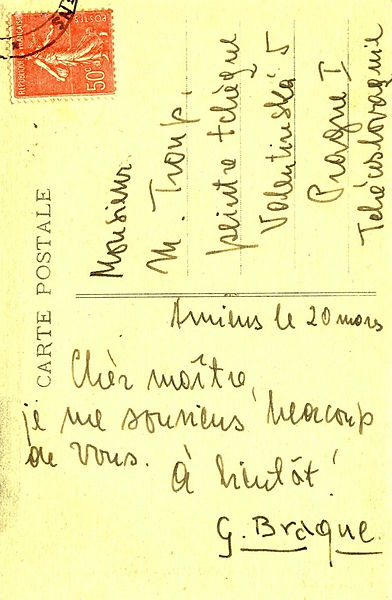 CARTE POSTALE
RÉPUBLIQUE FRANÇAISE
POSTES
50c
Monsieur
M. Troup,
peintre tchèque
Valentinská 5
Prague I
Tchécoslovaquie
Amiens le 20 mars
Chèr maître,
je me souviens beacoup
de vous.
à bientôt!
G. Braque.